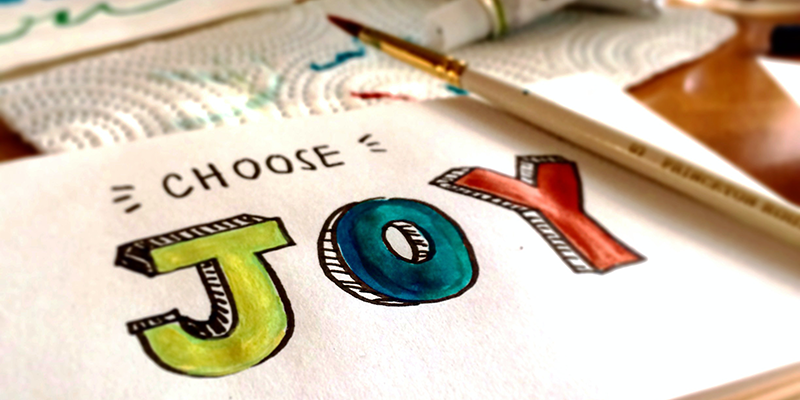 CHOOSE
JOY
PRINCETON